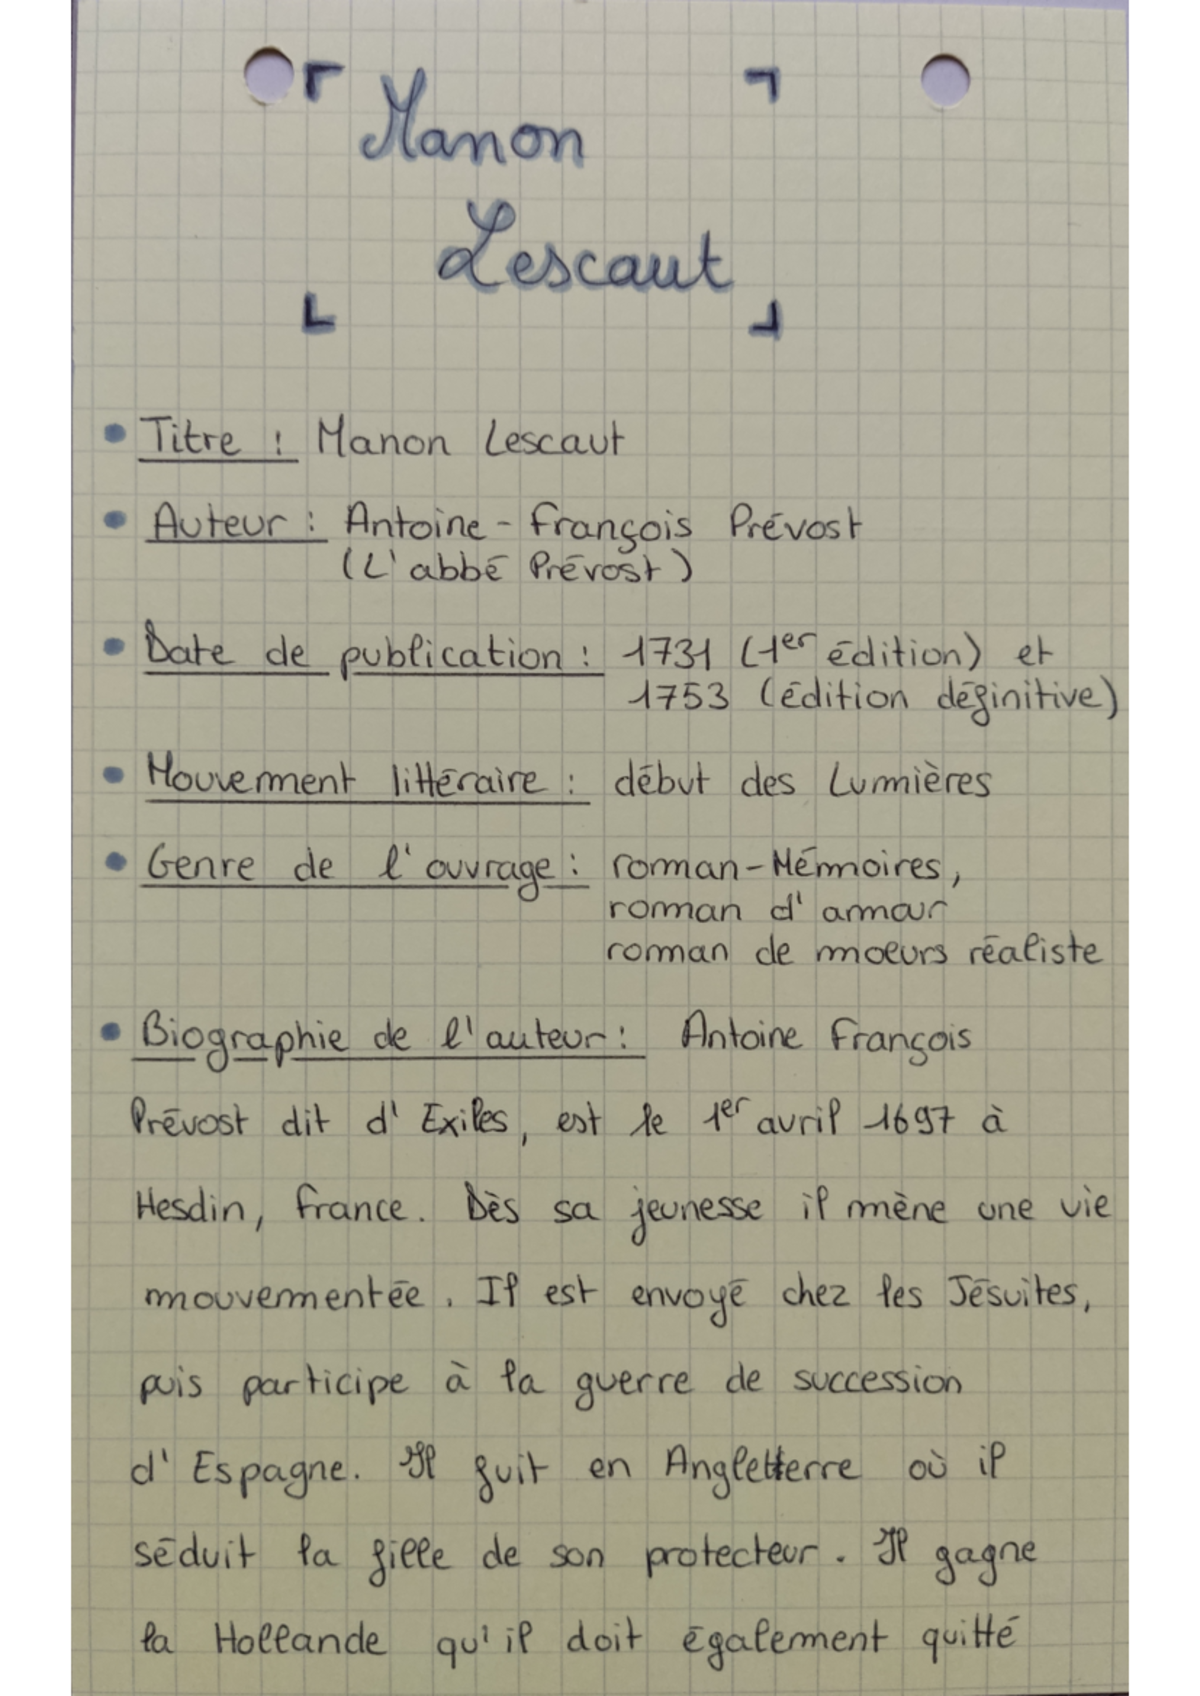 Manon
Lescaut
Titre : Manon Lescaut
Auteur : Antoine-François Prévost
(L'abbé Prévost)
Date de publication : 1731 (1er édition) et
1753 (édition définitive)
Mouvement littéraire : début des Lumières
Genre de l'ouvrage : roman-Mémoires,
roman d'amour
roman de moeurs réaliste
Biographie de l'auteur : Antoine François
Prévost dit d'Exiles, est le 1er avril 1697 à
Hesdin, France. Dès sa jeunesse il mène une vie
mouvementée. Il est envoyé chez les Jésuites,
puis participe à la guerre de succession
d'Espagne. Il fuit en Angleterre où il
séduit la fille de son protecteur. Il gagne
la Hollande qu'il doit également quitté